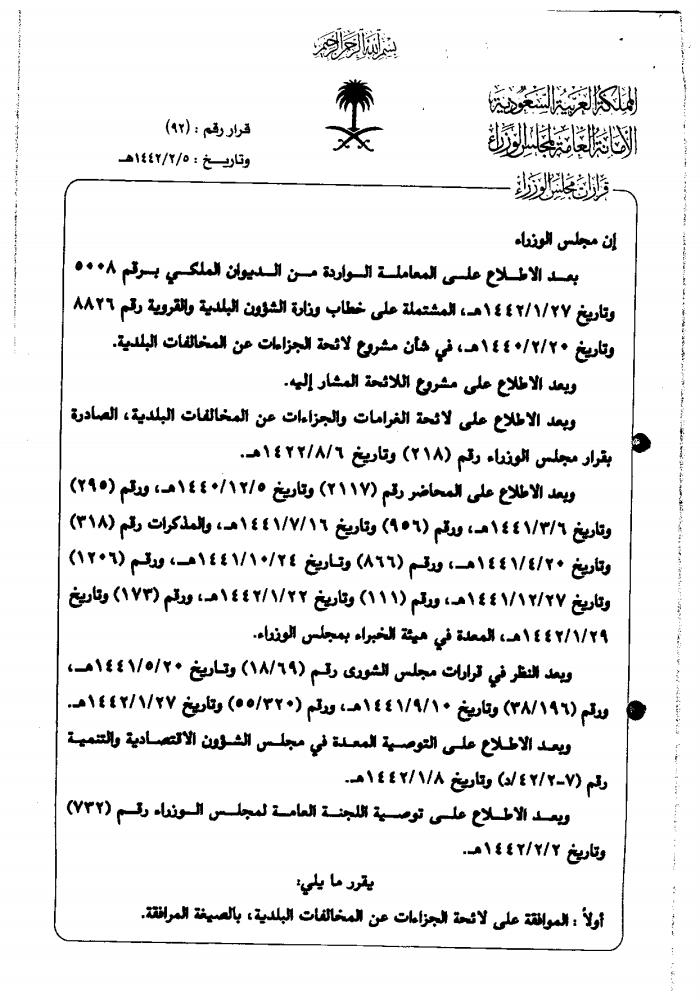 بسم الله الرحمن الرحيم
المملكة العربية السعودية
الأمانة العامة لمجلس الوزراء
قرارات مجلس الوزراء
قرار رقم : (٩٢)
وتاريـــخ : ١٤٤٢/٢/٥هـ
إن مجلس الوزراء
بعد الاطلاع على المعاملة الواردة من الديوان الملكي برقم ٥٠٠٨
وتاريخ ١٤٤٢/١/٢٧هـ، المشتملة على خطاب وزارة الشؤون البلدية والقروية رقم ٨٨٢٦
وتاريخ ١٤٤٠/٢/٢٠هـ، في شأن مشروع لائحة الجزاءات عن المخالفات البلدية.
وبعد الاطلاع على مشروع اللائحة المشار إليه.
وبعد الاطلاع على لائحة الغرامات والجزاءات عن المخالفات البلدية، الصادرة
بقرار مجلس الوزراء رقم (٢١٨) وتاريخ ١٤٢٢/٨/٦هـ.
وبعد الاطلاع على المحاضر رقم (٢١١٧) وتاريخ ١٤٤٠/١٢/٥هـ، ورقم (٢٩٥)
وتاريخ ١٤٤١/٣/٦هـ، ورقم (٩٥٦) وتاريخ ١٤٤١/٧/١٦هـ، والمذكرات رقم (٣١٨)
وتاريخ ١٤٤١/٤/٢٠هـ، ورقم (٨٦٦) وتاريخ ١٤٤١/١٠/٢٤هـ، ورقم (١٢٠٦)
وتاريخ ١٤٤١/١٢/٢٧هـ، ورقم (١١١) وتاريخ ١٤٤٢/١/٢٢هـ، ورقم (١٧٣) وتاريخ
١٤٤٢/١/٢٩هـ، المعدة في هيئة الخبراء بمجلس الوزراء.
وبعد النظر في قرارات مجلس الشورى رقم (١٨/٦٩) وتاريخ ١٤٤١/٥/٢٠هـ،
ورقم (٣٨/١٩٦) وتاريخ ١٤٤١/٩/١٠هـ، ورقم (٥٥/٣٢٠) وتاريخ ١٤٤٢/١/٢٧هـ.
وبعد الاطلاع على التوصية المعدة في مجلس الشؤون الاقتصادية والتنمية
رقم (٧-٤٢/٢/د) وتاريخ ١٤٤٢/١/٨هـ.
وبعد الاطلاع على توصية اللجنة العامة لمجلس الوزراء رقم (٧٣٢)
وتاريخ ١٤٤٢/٢/٢هـ.
يقرر ما يلي:
أولاً : الموافقة على لائحة الجزاءات عن المخالفات البلدية، بالصيغة المرافقة.